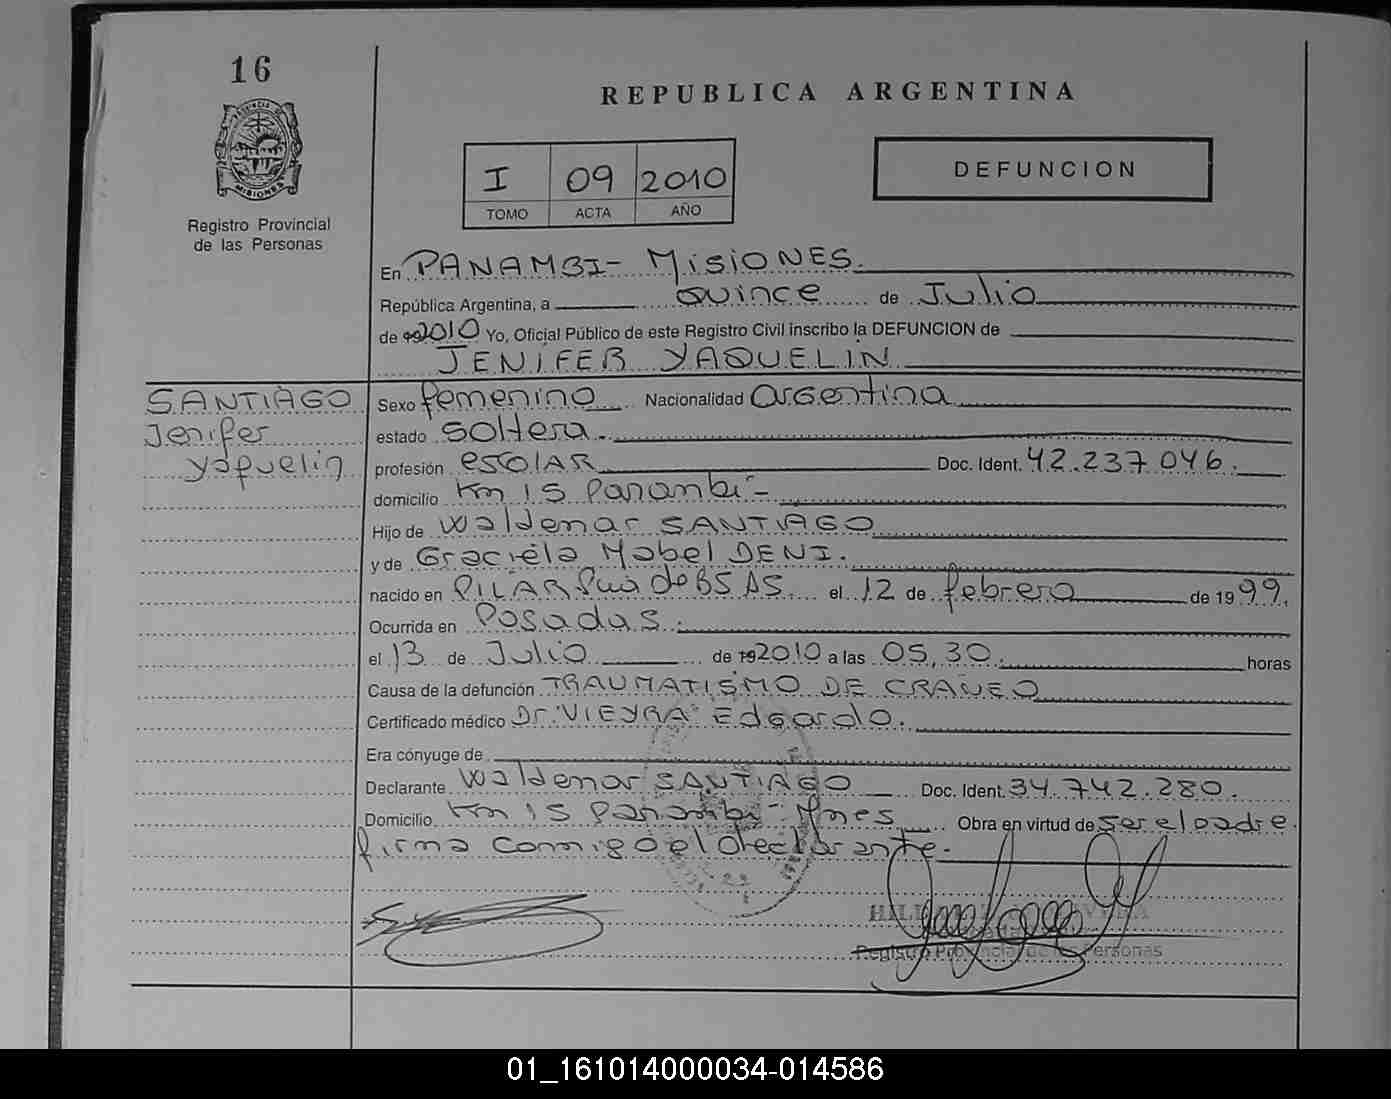 16
PROVINCIA DE
MISIONES
Registro Provincial
de las Personas
REPUBLICA ARGENTINA
I 09 2010
TOMO ACTA AÑO
DEFUNCION
En PANAMBI- MisiONES.
República Argentina, a Quince de Julio
de 2010 Yo, Oficial Público de este Registro Civil inscribo la DEFUNCION de
JENiFER YAQUELIN
SANTIAGO
Jenifer
Yaquelin
Sexo femenino Nacionalidad Argentina
estado soltera.
profesión escolAR Doc. Ident. 42.237.046.
domicilio Km 15 Panambi-
Hijo de Waldemar SANTIAGO
y de Graciela Mabel DENI.
nacido en PILAR de BS AS. el 12 de febrero de 1999.
Ocurrida en Posadas.
el 13 de Julio de 2010 a las 05,30. horas
Causa de la defunción TRAUMATISMO DE CRANEO
Certificado médico Dr. VIEYRA Edgardo.
Era cónyuge de
Declarante Waldemar SANTIAGO Doc. Ident. 34.742.280.
Domicilio Km 15 Panambi- Mnes Obra en virtud de ser el padre
firma conmigo el declarante.
Registro Provincial de las Personas
01_161014000034-014586